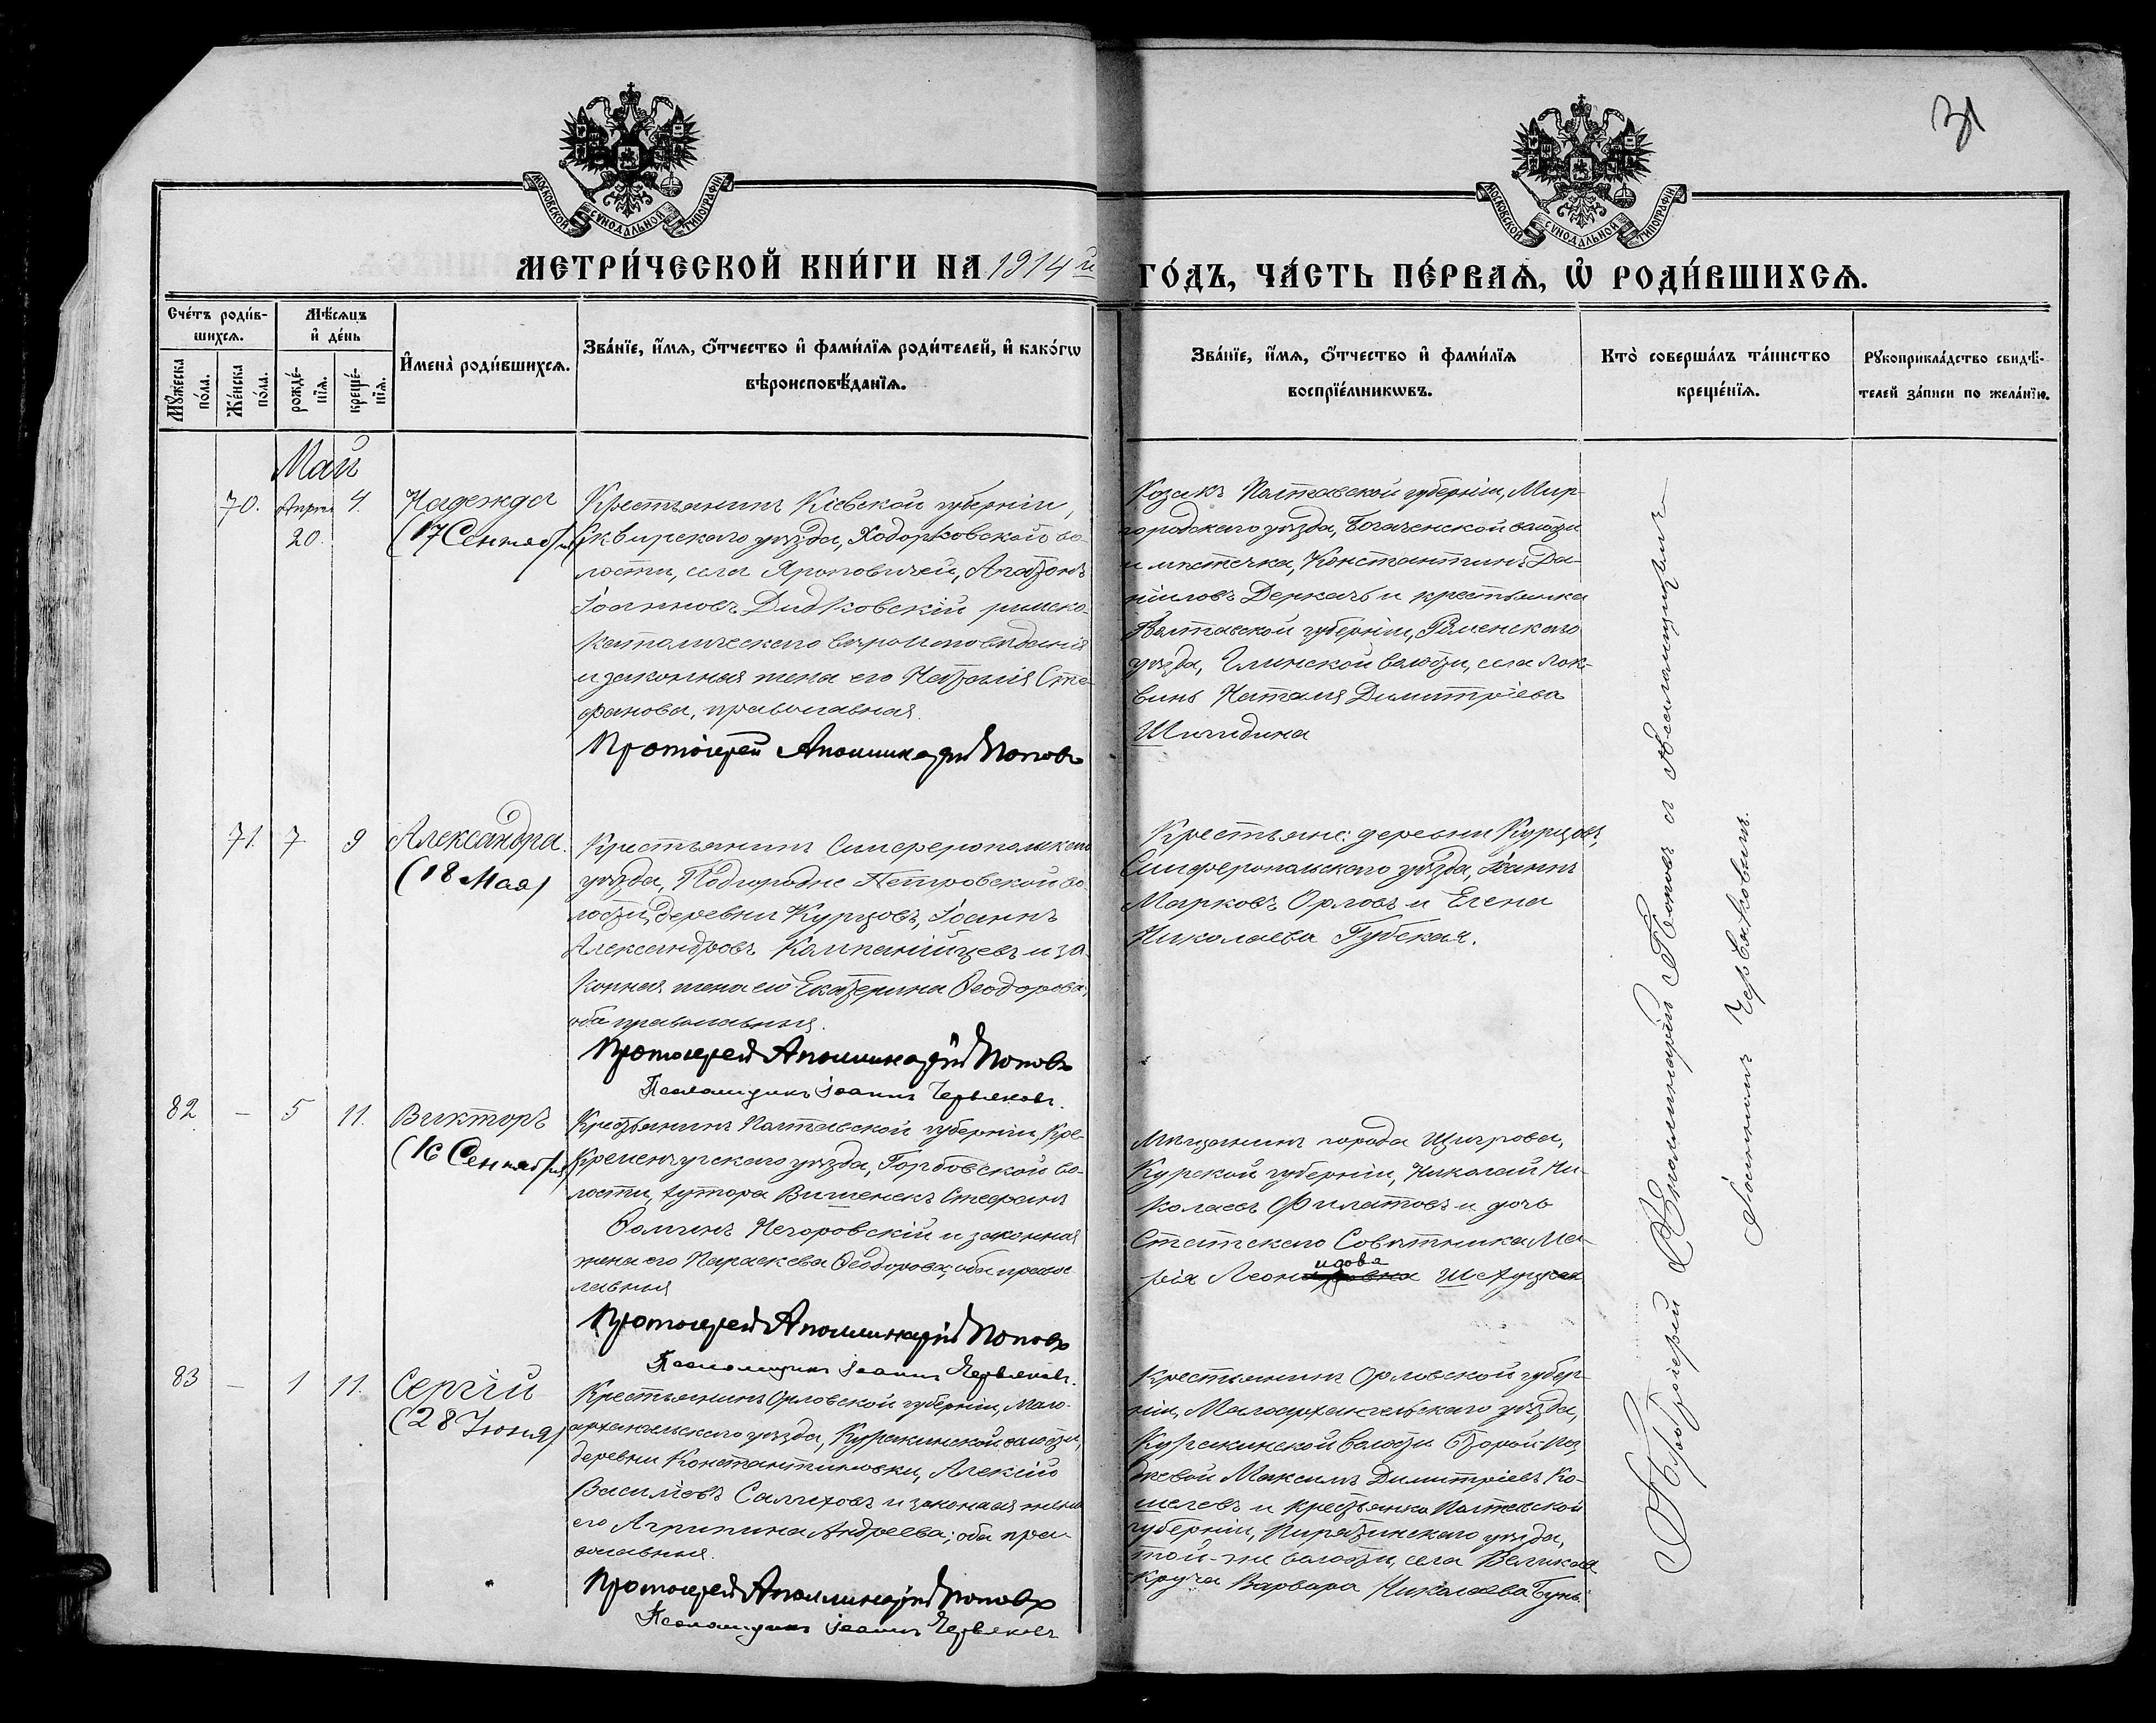 31
МОСКОВСКОЙ СѴНОДАЛЬНОЙ ТИПОГРАФІИ
МОСКОВСКОЙ СѴНОДАЛЬНОЙ ТИПОГРАФІИ
МЕТРИ́ЧЕСКОЙ КНИ́ГИ НА 1914й ГО́ДЪ, ЧА́СТЬ ПЕ́РВАѦ, Ѡ҆ РОДИ́ВШИХСѦ.
Сче́тъ роди́в-
шихсѧ.
Мꙋ́жеска по́ла.
Же́нска по́ла.
Мѣ́сѧцъ
и҆ де́нь
рожде́-
нїѧ.
креще́-
нїѧ.
И҆мена̀ роди́вшихсѧ.
Зва́нїе, и҆́мѧ, ѻ҆́тчество и҆ фами́лїѧ роди́телей, и҆ како́гѡ
вѣроисповѣ́данїѧ.
Зва́нїе, и҆́мѧ, ѻ҆́тчество и҆ фами́лїѧ
воспрїе́мникѡвъ.
Кто̀ соверша́лъ та́инство
креще́нїѧ.
Рꙋкоприкла́дство свидѣ́-
телей за́писи по жела́нїю.
Май
70. Апрѣл 20. 4. Надежда
(17 Сентября)
Крестьянинъ Кіевской губерніи,
Сквирскаго уѣзда, Ходорковской во-
лости, села Яроповичей, Агаѳонъ
Іоанновъ Дидковскій римско-
католическаго вѣроисповѣданія
и законная жена его Наталія Сте-
фанова, православная.
Протоіерей Аполлинарій Поповъ
Козакъ Полтавской губерніи, Мир-
городскаго уѣзда, Богаченской волости
и мѣстечка, Константинъ Да-
ніиловъ Деркачъ и крестьянка
Полтавской губерніи, Роменскаго
уѣзда, Глинской волости, села Лок-
Наталія Димитріева
71. 7 9 Александра.
(18 Мая)
Крестьянинъ Симферопольскаго
уѣзда, Подгородне Петровской во-
лости, деревни Курцовъ, Іоаннъ
Александровъ Компанійцевъ и за-
конная жена его Екатерина Ѳеодорова,
оба православные.
Протоіерей Аполлинарій Поповъ
Псаломщикъ Іоаннъ Червяковъ.
Крестьяне: деревни Курцовъ,
Симферопольскаго уѣзда, Іоаннъ
Марковъ Орловъ и Елена
Николаева Губская.
82 – 5 11. Викторъ
(16 Сентября)
Крестьянинъ Полтавской губерніи, Кре-
Кременчугскаго уѣзда, Горбовской во-
лости, хутора Вишенекъ Стефанъ
Ѳоминъ Нечоровскій и законная
жена его Параскева Ѳеодорова, оба право-
славные
Протоіерей Аполлинарій Поповъ
Псаломщикъ Іоаннъ Червяковъ.
Мѣщанинъ города Щигрова,
Курской губерніи, Николай Ни-
колаевъ Филатовъ и дочь
Статскаго Совѣтника Ма-
рія Леонидова Шехуцкая
83 – 1 11. Сергій
(28 Іюня)
Крестьянинъ Орловской губерніи, Мало-
архангельскаго уѣзда, Куракинской волости,
деревни Константиновки, Алексій
Васильевъ Салиховъ и законная жена
его Агрипина Андреева; оба пра-
вославные.
Протоіерей Аполлинарій Поповъ
Псаломщикъ Іоаннъ Червяковъ
Крестьянинъ Орловской губер-
ніи, Малоархангельскаго уѣзда,
Куракинской волости
Максимъ Димитріевъ Ко-
шелевъ и крестьянка Полтавской
губерніи, Пирятинскаго уѣзда,
той-же волости, села Великая
Круча Варвара Николаева Бунь.
Протоіерей Аполлинарій Поповъ съ псаломщикомъ
Іоанномъ Червяковымъ.